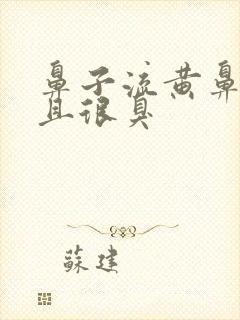 鼻子流黄鼻
且很臭
蘇建